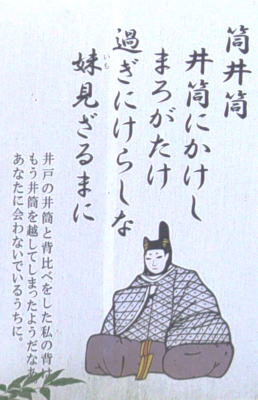 筒井筒
井筒にかけし
まろがたけ
過ぎにけらしな
妹見ざるまに
いも
井戸の井筒と背比べをした私の背は
もう井筒を越してしまったようだなあ
あなたに会わないでいるうちに。